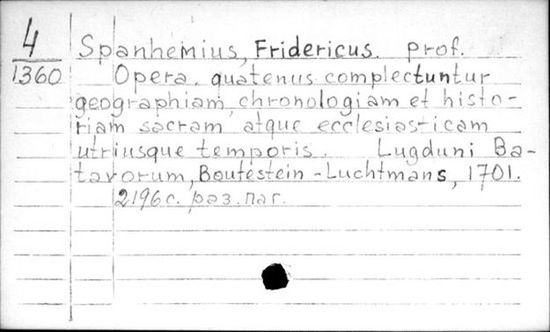 4
1360
Spanhemius, Fridericus. prof.
Opera, quatenus complectuntur
geographiam, chronologiam et histo-
riam sacram atque ecclesiasticam
utriusque temporis. Lugduni Ba-
tavorum, Boutestein-Luchtmans, 1701.
2196 с. раз. паг.